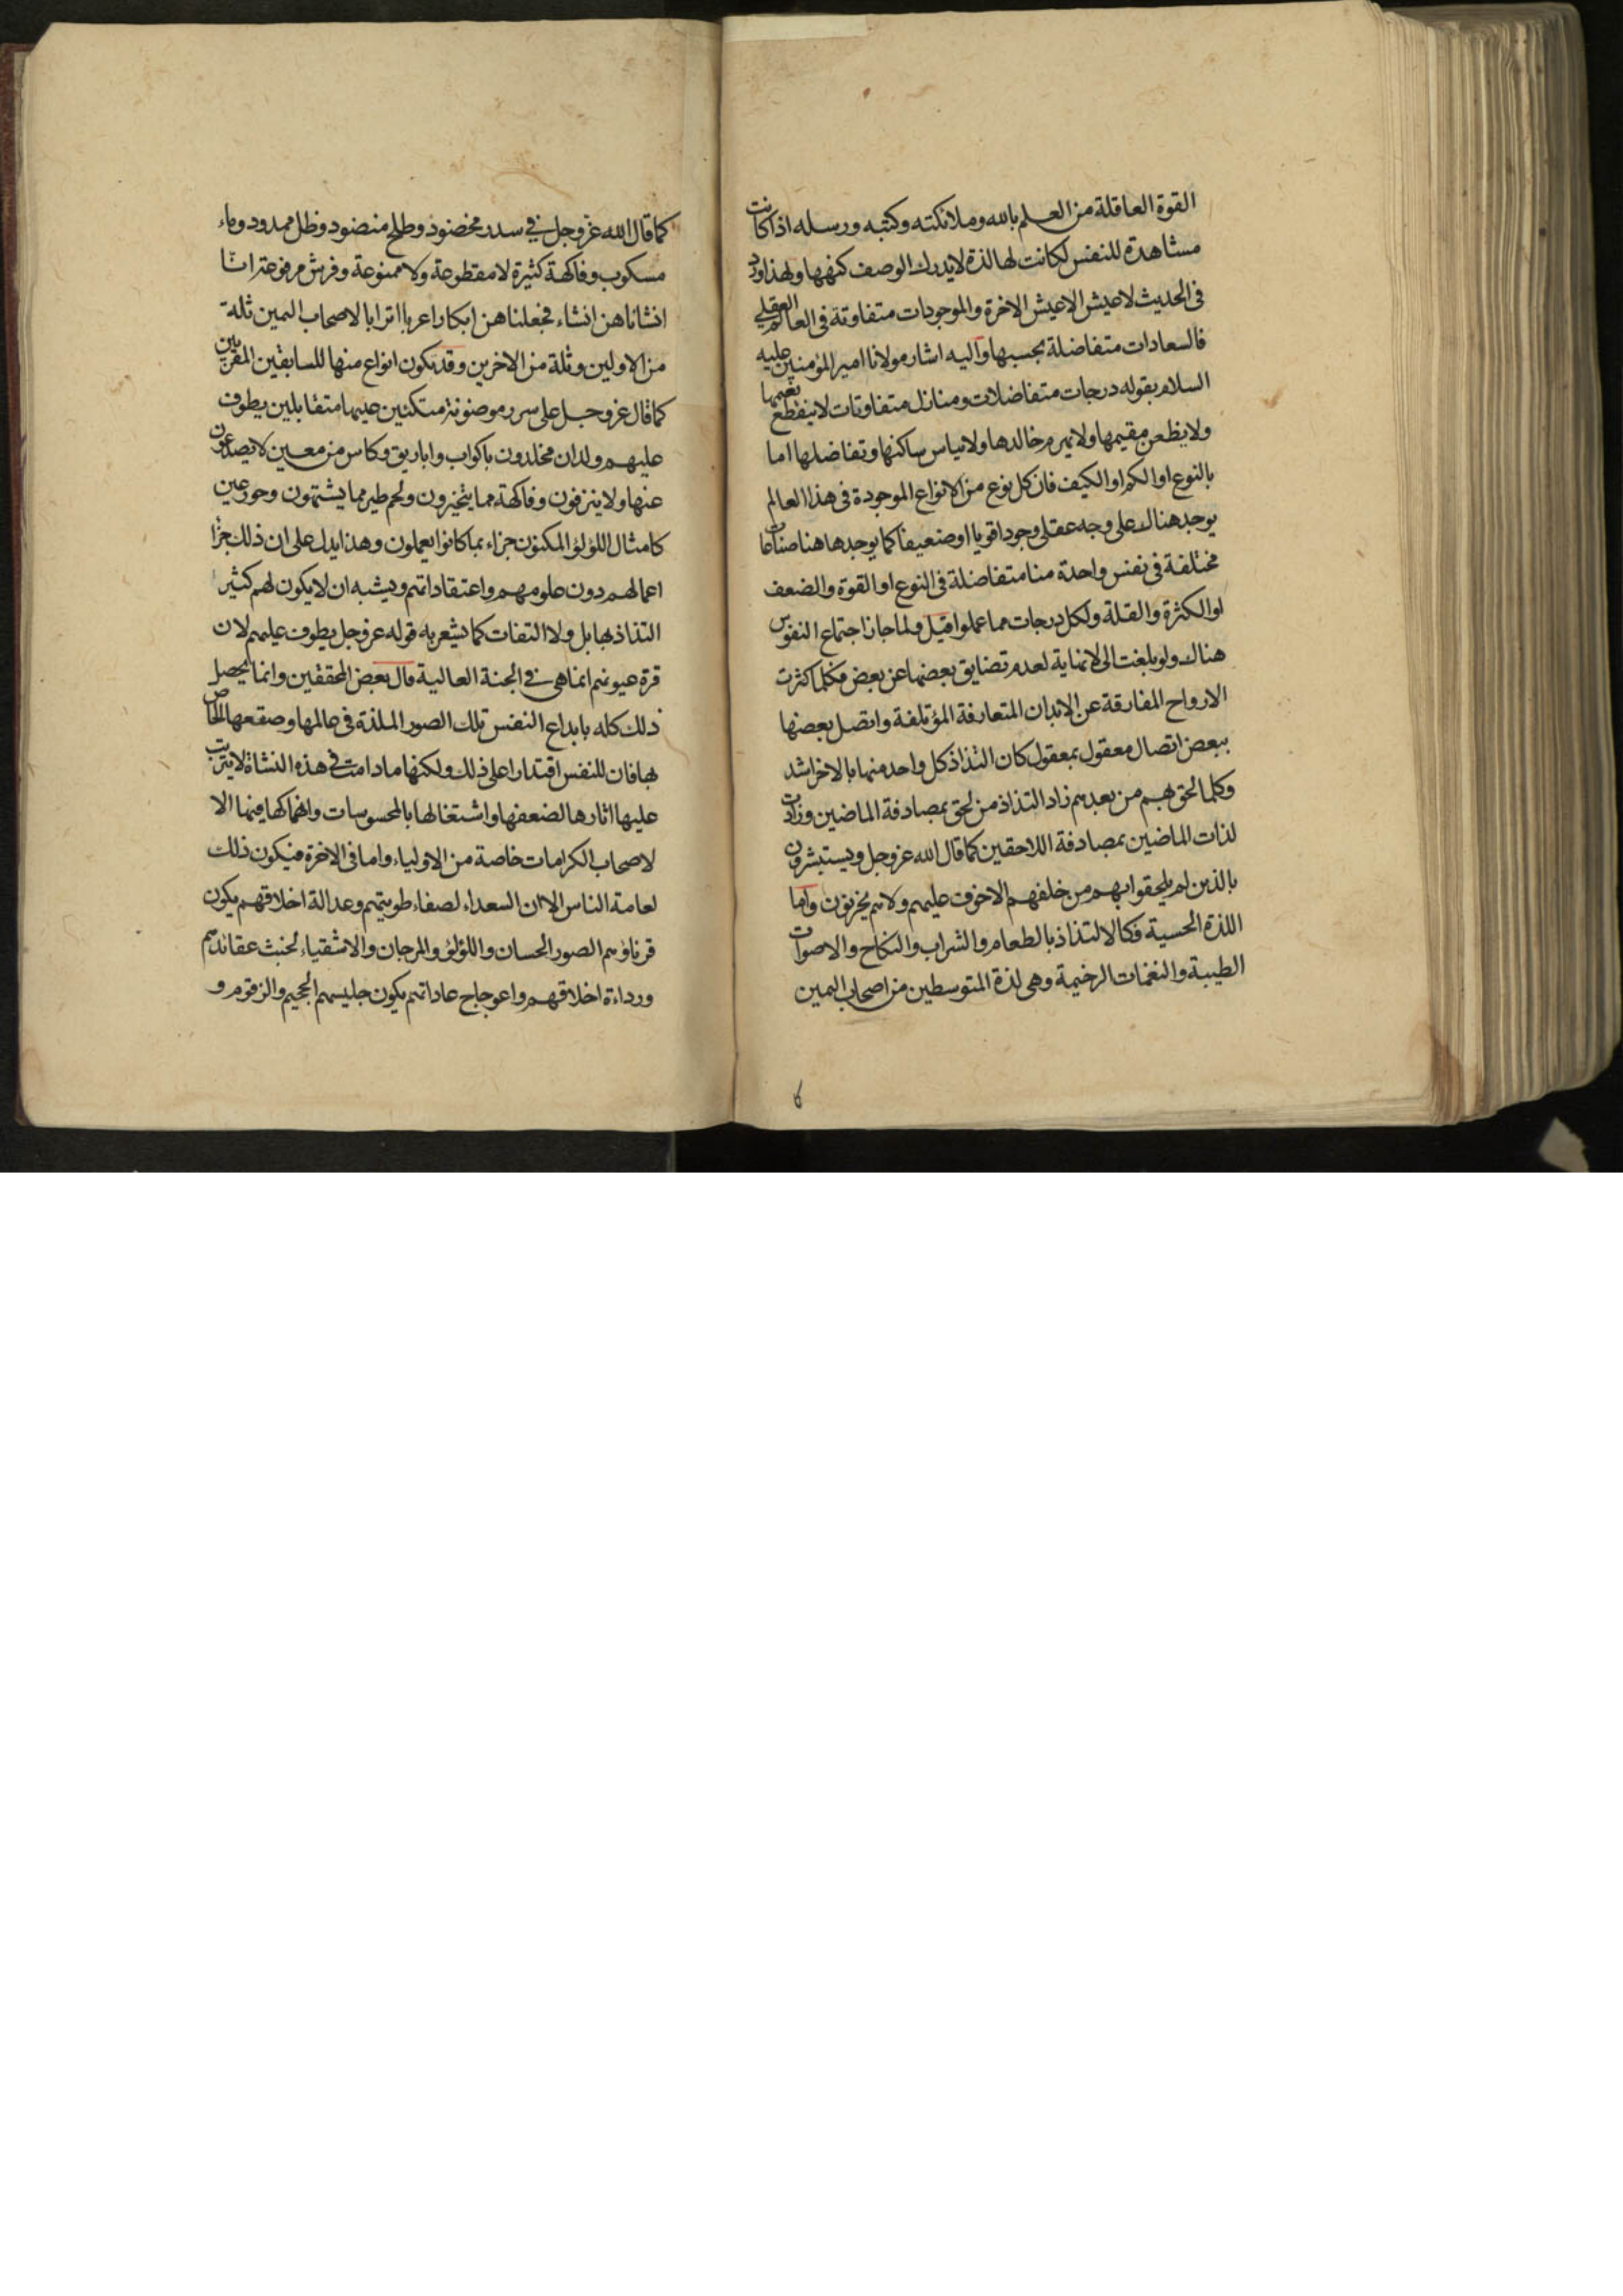 القوة العاقلة من العلم بالله وملائكته وكتبه ورسله اذا كانت
مشاهدة للنفس لكانت لها لذة لا يدرك الوصف كنهها ولهذا ورد
فى الحديث لا عيش الا عيش الاخرة والموجودات متفاوتة فى العالم العقلي
فالسعادات متفاضلة بحسبها واليه اشار مولانا امير المؤمنين عليه
السلام بقوله درجات متفاضلات ومنازل متفاوتات لا ينقطع نعيمها
ولا يظعن مقيمها ولا يهرم خالدها ولا يباس ساكنها وتفاضلها اما
بالنوع او الكم او الكيف فان كل نوع من الانواع الموجودة فى هذا العالم
يوجد هناك على وجه عقلى وجودا قويا او ضعيفا كما يوجد هاهنا صناعات
مختلفة فى نفس واحدة منا متفاضلة فى النوع او القوة والضعف
او الكثرة والقلة ولكل درجات مما عملوا قيل ولما جاز اجتماع النفوس
هناك ولو بلغت الى لا نهاية لعدم تضايق بعضها عن بعض فكلما كثرت
الارواح المفارقة عن الابدان المتعارفة المؤتلفة واتصل بعضها
ببعض اتصال معقول بمعقول كان التذاذ كل واحد منها بالاخر اشد
وكلما لحق بهم من بعدهم زاد التذاذ من لحق بمصادفة الماضين وزادت
لذات الماضين بمصادفة اللاحقين كما قال الله عز وجل ويستبشرون
بالذين لم يلحقوا بهم من خلفهم الا خوف عليهم ولا هم يحزنون واما
اللذة الحسية فكالالتذاذ بالطعام والشراب والنكاح والاصوات
الطيبة والنغمات الرخيمة وهى لذة المتوسطين من اصحاب اليمين
كما قال الله عز وجل في سدر مخضود وطلح منضود وظل ممدود وماء
مسكوب وفاكهة كثيرة لا مقطوعة ولا ممنوعة وفرش مرفوعة انا
انشاناهن انشاء فجعلناهن ابكارا عربا اترابا لاصحاب اليمين ثلة
من الاولين وثلة من الاخرين وقد يكون انواع منها للسابقين المقربين
كما قال عز وجل على سرر موضونة متكئين عليها متقابلين يطوف
عليهم ولدان مخلدون باكواب واباريق وكاس من معين لا يصدعون
عنها ولا ينزفون وفاكهة مما يتخيرون ولحم طير مما يشتهون وحور عين
كامثال اللؤلؤ المكنون جزاء بما كانوا يعملون وهذا يدل على ان ذلك جزا
اعمالهم دون علومهم واعتقاداتهم ويشبه ان لا يكون لهم كثير
التذاذ بها بل ولا التفات كما يشعر به قوله عز وجل يطوف عليهم لان
قرة عيونهم انما هى في الجنة العالية قال بعض المحققين وانما يحصل
ذلك كله بابداع النفس تلك الصور الملذة فى عالمها وصقعها الخاص
بها فان للنفس اقتدارا على ذلك ولكنها ما دامت في هذه النشاة لا يترتب
عليها اثارها لضعفها واشتغالها بالمحسوسات وانهماكها فيها الا
لاصحاب الكرامات خاصة من الاولياء واما فى الاخرة فيكون ذلك
لعامة الناس الا ان السعداء لصفاء طويتهم وعدالة اخلاقهم يكون
قرناؤهم الصور الحسان واللؤلؤ والمرجان والاشقياء لخبث عقائدهم
ورداءة اخلاقهم واعوجاج عاداتهم يكون جليسهم الجحيم والزقوم و